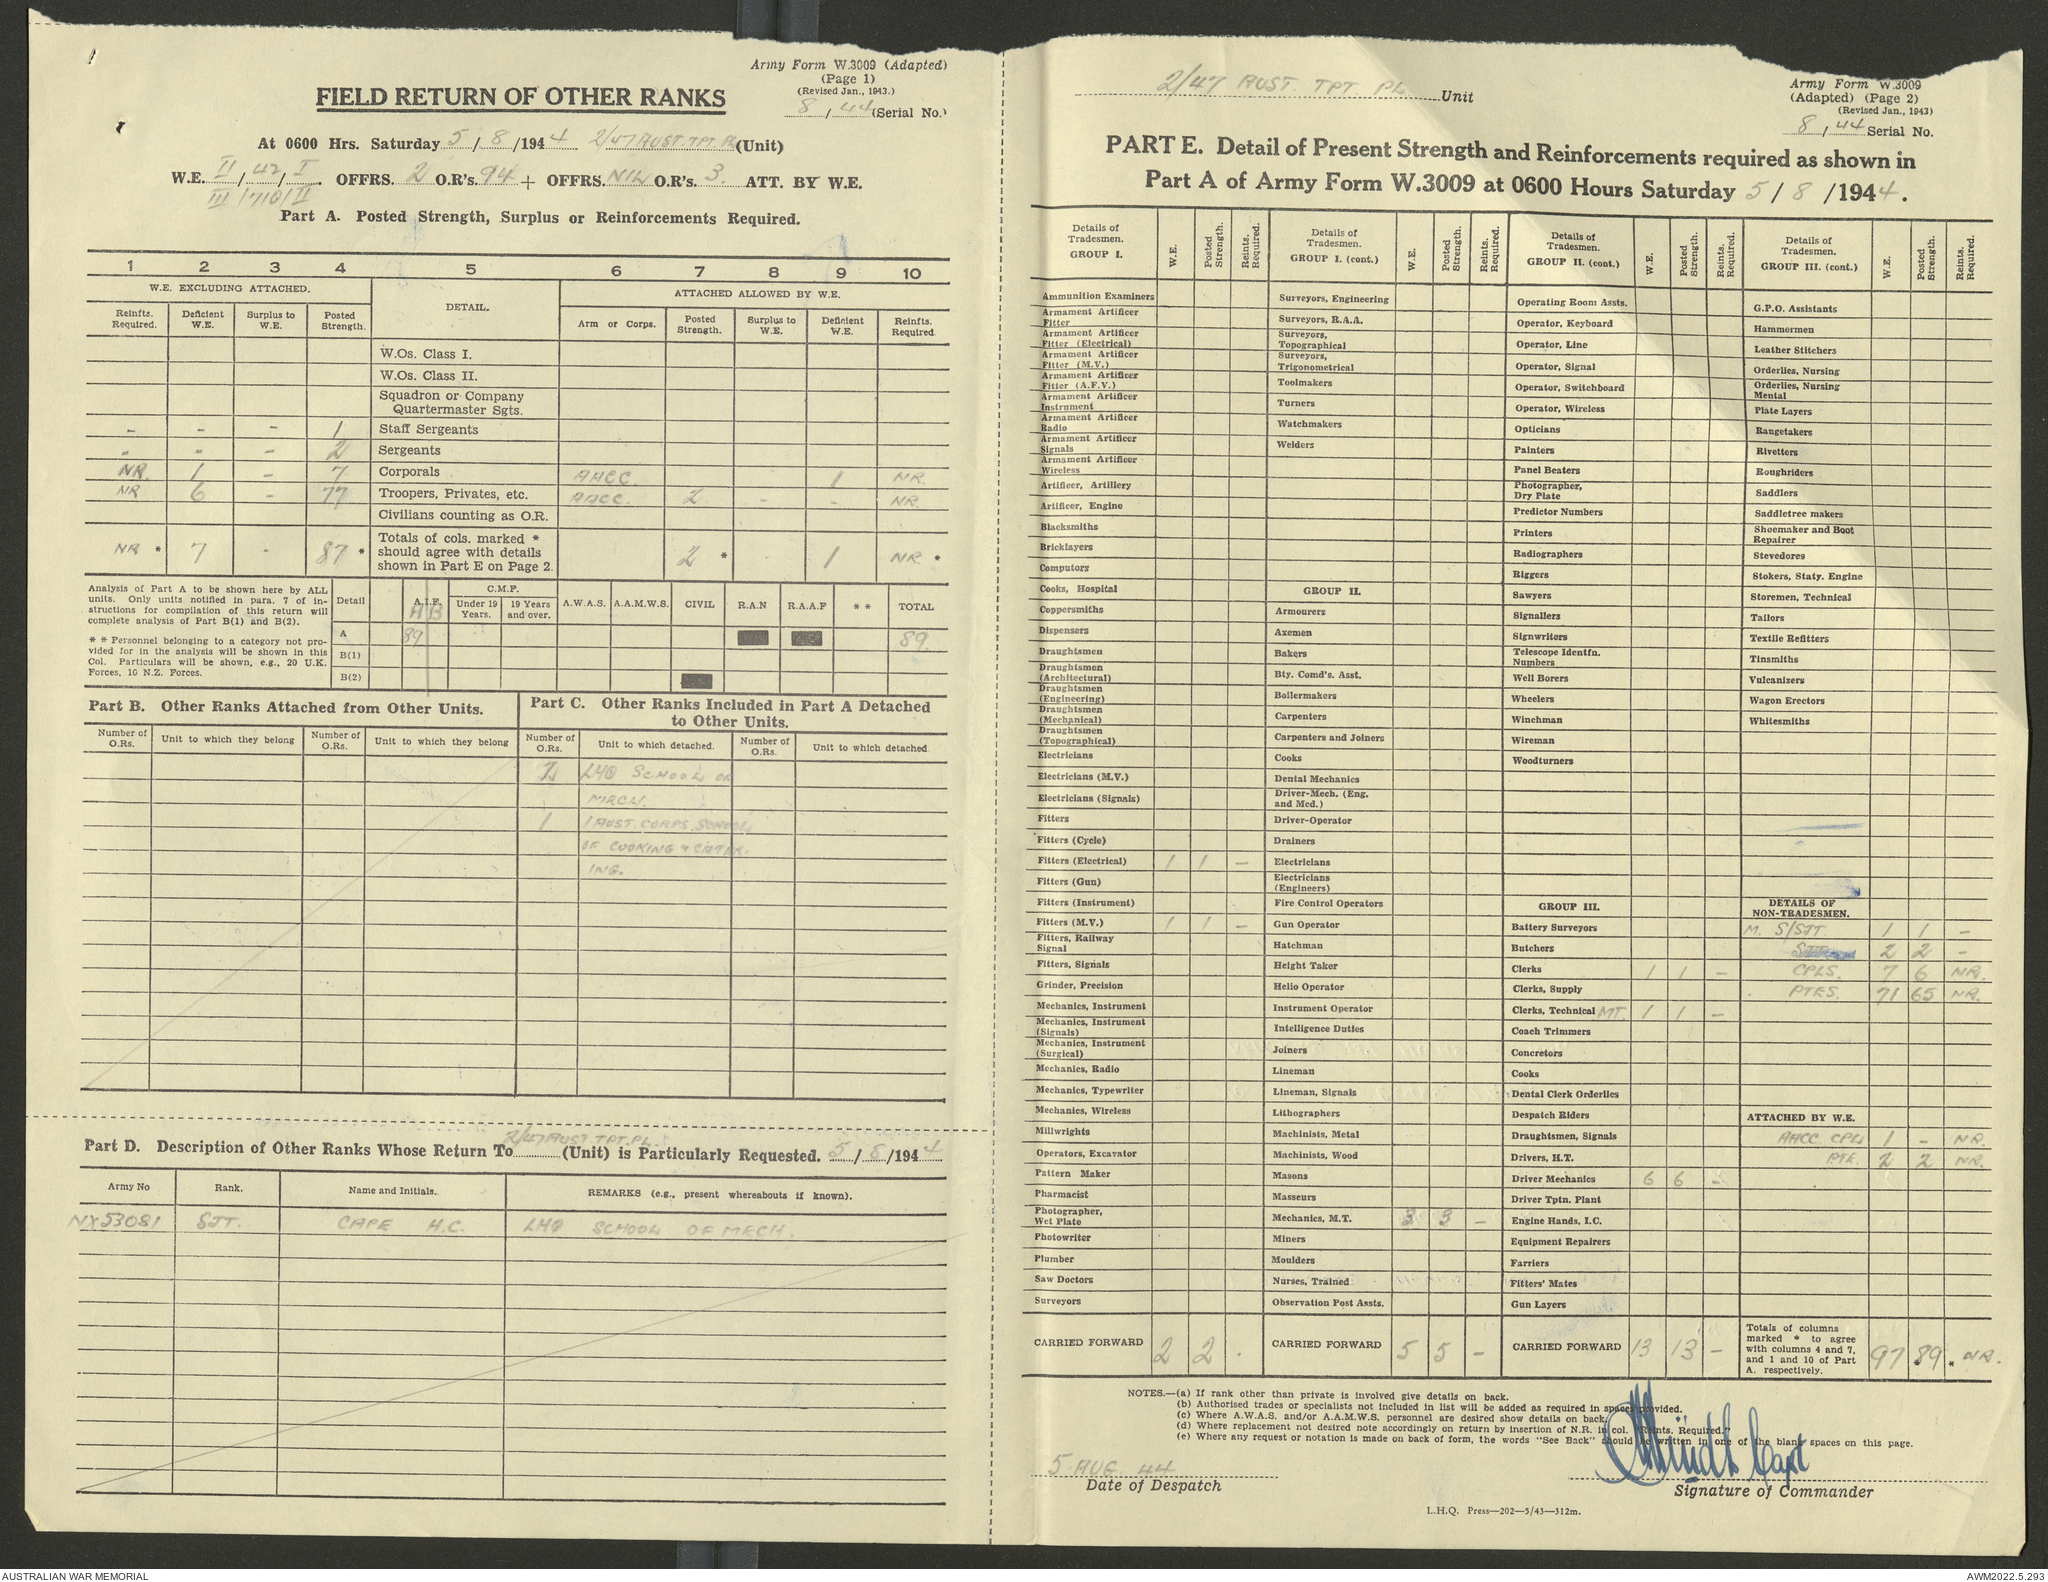 Army Form W.3009 (Adapted)
(Page 1)
(Revised Jan., 1943.)
8 , 44 (Serial No.)
FIELD RETURN OF OTHER RANKS
At 0600 Hrs. Saturday 5 / 8 /1944 2/47 AUST. TPT. PL (Unit)
W.E. II / 42 / I OFFRS. 2 O.R's. 94 + OFFRS. NIL O.R's. 3. ATT. BY W.E.
III /710/ II
Part A. Posted Strength, Surplus or Reinforcements Required.
1 2 3 4 5 6 7 8 9 10
W.E. EXCLUDING ATTACHED. DETAIL. ATTACHED ALLOWED BY W.E.
Reinfts. Required. Deficient W.E. Surplus to W.E. Posted Strength. Arm or Corps. Posted Strength. Surplus to W.E. Deficient W.E. Reinfts. Required.
W.Os. Class I.
W.Os. Class II.
Squadron or Company
Quartermaster Sgts.
- - - 1 Staff Sergeants
- - - 2 Sergeants
NR. 1 - 7 Corporals AACC. 1 NR.
NR 6 - 77 Troopers, Privates, etc. AACC. 2 - - NR.
Civilians counting as O.R.
NR * 7 - 87 * Totals of cols. marked * should agree with details shown in Part E on Page 2. 2 * - 1 NR *
Analysis of Part A to be shown here by ALL
units. Only units notified in para. 7 of in-
structions for compilation of this return will
complete analysis of Part B(1) and B(2).
* * Personnel belonging to a category not pro-
vided for in the analysis will be shown in this
Col. Particulars will be shown, e.g., 20 U.K.
Forces, 10 N.Z. Forces.
Detail A.I.F. C.M.F. Under 19 Years. 19 Years and over. A.W.A.S. A.A.M.W.S. CIVIL R.A.N R.A.A.F * * TOTAL
A B
A 89 89.
B(1)
B(2)
Part B. Other Ranks Attached from Other Units.
Part C. Other Ranks Included in Part A Detached
to Other Units.
Number of O.Rs. Unit to which they belong Number of O.Rs. Unit to which they belong Number of O.Rs. Unit to which detached. Number of O.Rs. Unit to which detached.
2 LHQ SCHOOL OF
MECH.
1 1 AUST. CORPS. SCHOOL
OF COOKING & CATER-
ING.
Part D. Description of Other Ranks Whose Return To 2/47 AUST. TPT. PL. (Unit) is Particularly Requested. 5 / 8 /1944
Army No Rank. Name and Initials. REMARKS (e.g., present whereabouts if known).
NX53081 SJT. CAPE H.C. LHQ SCHOOL OF MECH.
2/47 AUST. TPT PL Unit
Army Form W.3009
(Adapted) (Page 2)
(Revised Jan., 1943)
8 , 44 Serial No.
PART E. Detail of Present Strength and Reinforcements required as shown in
Part A of Army Form W.3009 at 0600 Hours Saturday 5 / 8 / 1944.
Details of Tradesmen. GROUP I. W.E. Posted Strength. Reints. Required.
Ammunition Examiners
Armament Artificer Fitter
Armament Artificer Fitter (Electrical)
Armament Artificer Fitter (M.V.)
Armament Artificer Fitter (A.F.V.)
Armament Artificer Instrument
Armament Artificer Radio
Armament Artificer Signals
Armament Artificer Wireless
Artificer, Artillery
Artificer, Engine
Blacksmiths
Bricklayers
Computors
Cooks, Hospital
Coppersmiths
Dispensers
Draughtsmen
Draughtsmen (Architectural)
Draughtsmen (Engineering)
Draughtsmen (Mechanical)
Draughtsmen (Topographical)
Electricians
Electricians (M.V.)
Electricians (Signals)
Fitters
Fitters (Cycle)
Fitters (Electrical) 1 1 -
Fitters (Gun)
Fitters (Instrument)
Fitters (M.V.) 1 1 -
Fitters, Railway Signal
Fitters, Signals
Grinder, Precision
Mechanics, Instrument
Mechanics, Instrument (Signals)
Mechanics, Instrument (Surgical)
Mechanics, Radio
Mechanics, Typewriter
Mechanics, Wireless
Millwrights
Operators, Excavator
Pattern Maker
Pharmacist
Photographer, Wet Plate
Photowriter
Plumber
Saw Doctors
Surveyors
CARRIED FORWARD 2 2 -
Details of Tradesmen. GROUP I. (cont.) W.E. Posted Strength. Reints. Required.
Surveyors, Engineering
Surveyors, R.A.A.
Surveyors, Topographical
Surveyors, Trigonometrical
Toolmakers
Turners
Watchmakers
Welders
GROUP II.
Armourers
Axemen
Bakers
Bty. Comd's. Asst.
Boilermakers
Carpenters
Carpenters and Joiners
Cooks
Dental Mechanics
Driver-Mech. (Eng. and Med.)
Driver-Operator
Drainers
Electricians
Electricians (Engineers)
Fire Control Operators
Gun Operator
Hatchman
Height Taker
Helio Operator
Instrument Operator
Intelligence Duties
Joiners
Lineman
Lineman, Signals
Lithographers
Machinists, Metal
Machinists, Wood
Masons
Masseurs
Mechanics, M.T. 3 3 -
Miners
Moulders
Nurses, Trained
Observation Post Assts.
CARRIED FORWARD 5 5 -
Details of Tradesmen. GROUP II. (cont.) W.E. Posted Strength. Reints. Required.
Operating Room Assts.
Operator, Keyboard
Operator, Line
Operator, Signal
Operator, Switchboard
Operator, Wireless
Opticians
Painters
Panel Beaters
Photographer, Dry Plate
Predictor Numbers
Printers
Radiographers
Riggers
Sawyers
Signallers
Signwriters
Telescope Identfn. Numbers
Well Borers
Wheelers
Winchman
Wireman
Woodturners
GROUP III.
Battery Surveyors
Butchers
Clerks 1 1 -
Clerks, Supply
Clerks, Technical MT. 1 1 -
Coach Trimmers
Concretors
Cooks
Dental Clerk Orderlies
Despatch Riders
Draughtsmen, Signals
Drivers, H.T.
Driver Mechanics 6 6 -
Driver Tptn. Plant
Engine Hands, I.C.
Equipment Repairers
Farriers
Fitters' Mates
Gun Layers
CARRIED FORWARD 13 13 -
Details of Tradesmen. GROUP III. (cont.) W.E. Posted Strength. Reints. Required.
G.P.O. Assistants
Hammermen
Leather Stitchers
Orderlies, Nursing
Orderlies, Nursing Mental
Plate Layers
Rangetakers
Rivetters
Roughriders
Saddlers
Saddletree makers
Shoemaker and Boot Repairer
Stevedores
Stokers, Staty. Engine
Storemen, Technical
Tailors
Textile Refitters
Tinsmiths
Vulcanizers
Wagon Erectors
Whitesmiths
DETAILS OF NON-TRADESMEN.
M. S/SJT 1 1 -
2 2 -
CPLS. 7 6 NR.
PTES. 71 65 NR.
ATTACHED BY W.E.
AACC CPL 1 - NR.
PTE. 2 2 NR.
Totals of columns marked * to agree with columns 4 and 7, and 1 and 10 of Part A. respectively. 97 * 89 * NR.
NOTES.—(a) If rank other than private is involved give details on back.
(b) Authorised trades or specialists not included in list will be added as required in spaces provided.
(c) Where A.W.A.S. and/or A.A.M.W.S. personnel are desired show details on back.
(d) Where replacement not desired note accordingly on return by insertion of N.R. in col. "Reints. Required."
(e) Where any request or notation is made on back of form, the words "See Back" should be written in one of the blank spaces on this page.
5 AUG 44
Date of Despatch
Capt
Signature of Commander
L.H.Q. Press—202—5/43—312m.
AUSTRALIAN WAR MEMORIAL
AWM2022.5.293